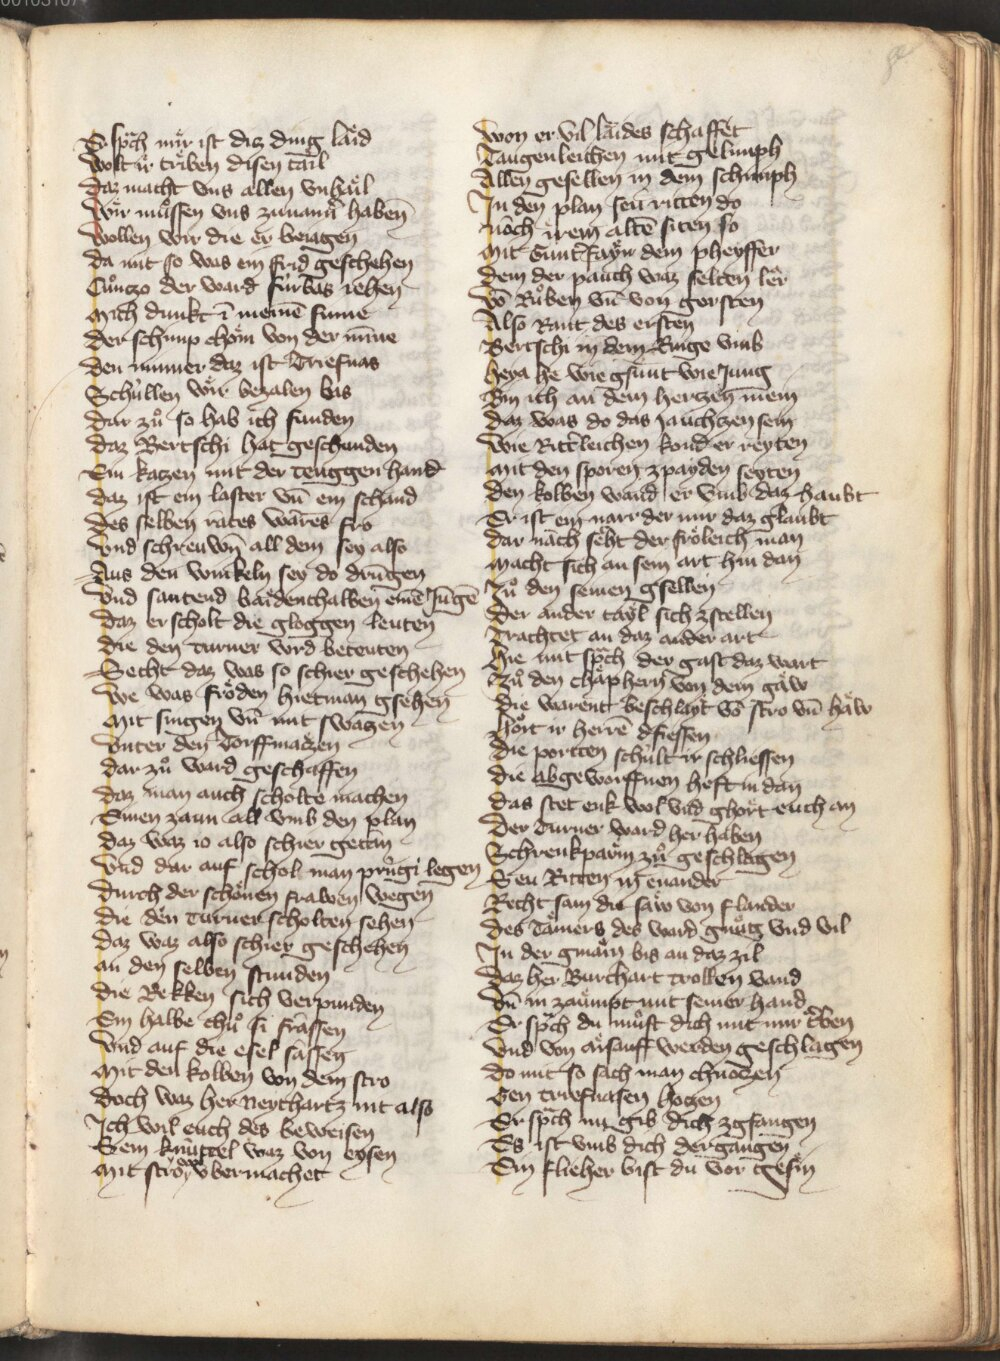 Er spͣch mir ist diz ding laͤid
Wolt ir triben disen tail
Daz macht vns allen vnhaͤil
Wir muͤssen vns zunamn̄ haben
Wollen wir die er beiagen
Da mit so was ein frid geschehen
Cuͦnczo der ward fúrbas iehen
Mich dunkt ī meinē sinne
Der schimp choͤm von der minne
Den nimer daz ist Triefnas
Schúllen wir bezalen bis
Dar zuͦ so hab ich funden
Daz Bertschi hat geschunden
Ein katzen mit der tenggen hand
Daz ist ein laster vn̄ ein schand
Des selben rates warēs fro
Vnd schreuwn̄ all dem sey also
Aus den winkeln sey do drungen
Vnd santend baͤidenthalben einē Jungē
Daz er scholt die gloggen leuten
Die den turner word beteuten
Secht daz was so schier geschehen
We was froͤden hietman gsehen
Mit singen vn̄ mit swatzen
Vnter den Dorffmatzen
Dar zuͦ ward geschaffen
Daz man auch scholte machen
Einen zaun all vmb den plan
Daz waz io also schier getan
Vnd dar auf schol man prúgi legen
Durch der schoͤnen frawen wegen
Die den turner scholten sehen
Daz waz also schier geschehen
An den selben stunden
Die Rekken sich verpunden
Ein halbe chuͦ si frâssen
Vnd auf die esel sâssen
Mit den kolben von dem stro
Doch waz her neythartz nit also
Ich wil euch des beweisen
Sein knúttel waz von eysen
Mit stro vbermachet
Won er vil laides schaffet
Taugenleichen mit gelimph
Allen gesellen in dem schimph
In den plan seu ritten do
Nôch irem altē siten so
Mit Gunterfayn dem pheyffer
Dem der pauch waz selten ler
Vō Ruͦben vn̄ von gersten
Also Rant des ersten
Bertschi in dem Ringe vmb
Heya he wie gsunt wie Jung
Bin ich an dem hertzen mein
Daz was do das jauchtzen sein
Wie Rittleichen kond er reyten
Mit den sporen zpayden seyten
Den kolben wand er vmb daz haubt
Er ist ein narr der mir daz glaubt
Dar nâch seht der froͤleich man
Macht sich an sein art hin dan
Zuͦ den seinen gsellen
Der ander tayl sich zstellen
Trachtet an daz ander art
Hie mit spͣch der gast daz wart
Zuͦ den chaͤphern von dem gaͤw
Die warent beschlayt vō stro vn̄ haͤw
Hoͤrt ir herrē dfiessen
Die portten schúlt ir schliessen
Die abgeworffnen heft in dan
Das stet enk wol vnd ghoͤrt euch an
Der turner ward her haben
Schrenkparn zuͦ geschlagen
Seu Ritten in enander
Recht sam die saͤw von flander
Des Taͤmers des ward gnuͦg vnd vil
In der gmain bis an daz zil
Daz her Burchart trollen vand
Vn̄ in zaͤumpt mit seiner hand
Er spͣch du muͦst dich mit mir ͤrben
Vnd von arsauff werden geschlagen
Do mit so sach man chnotzen
Gen triefnasen hotzen
Er spͣch nu gib dich zgfangen
Es ist vmb dich dergangen
Ein flieher bist du vor gesin